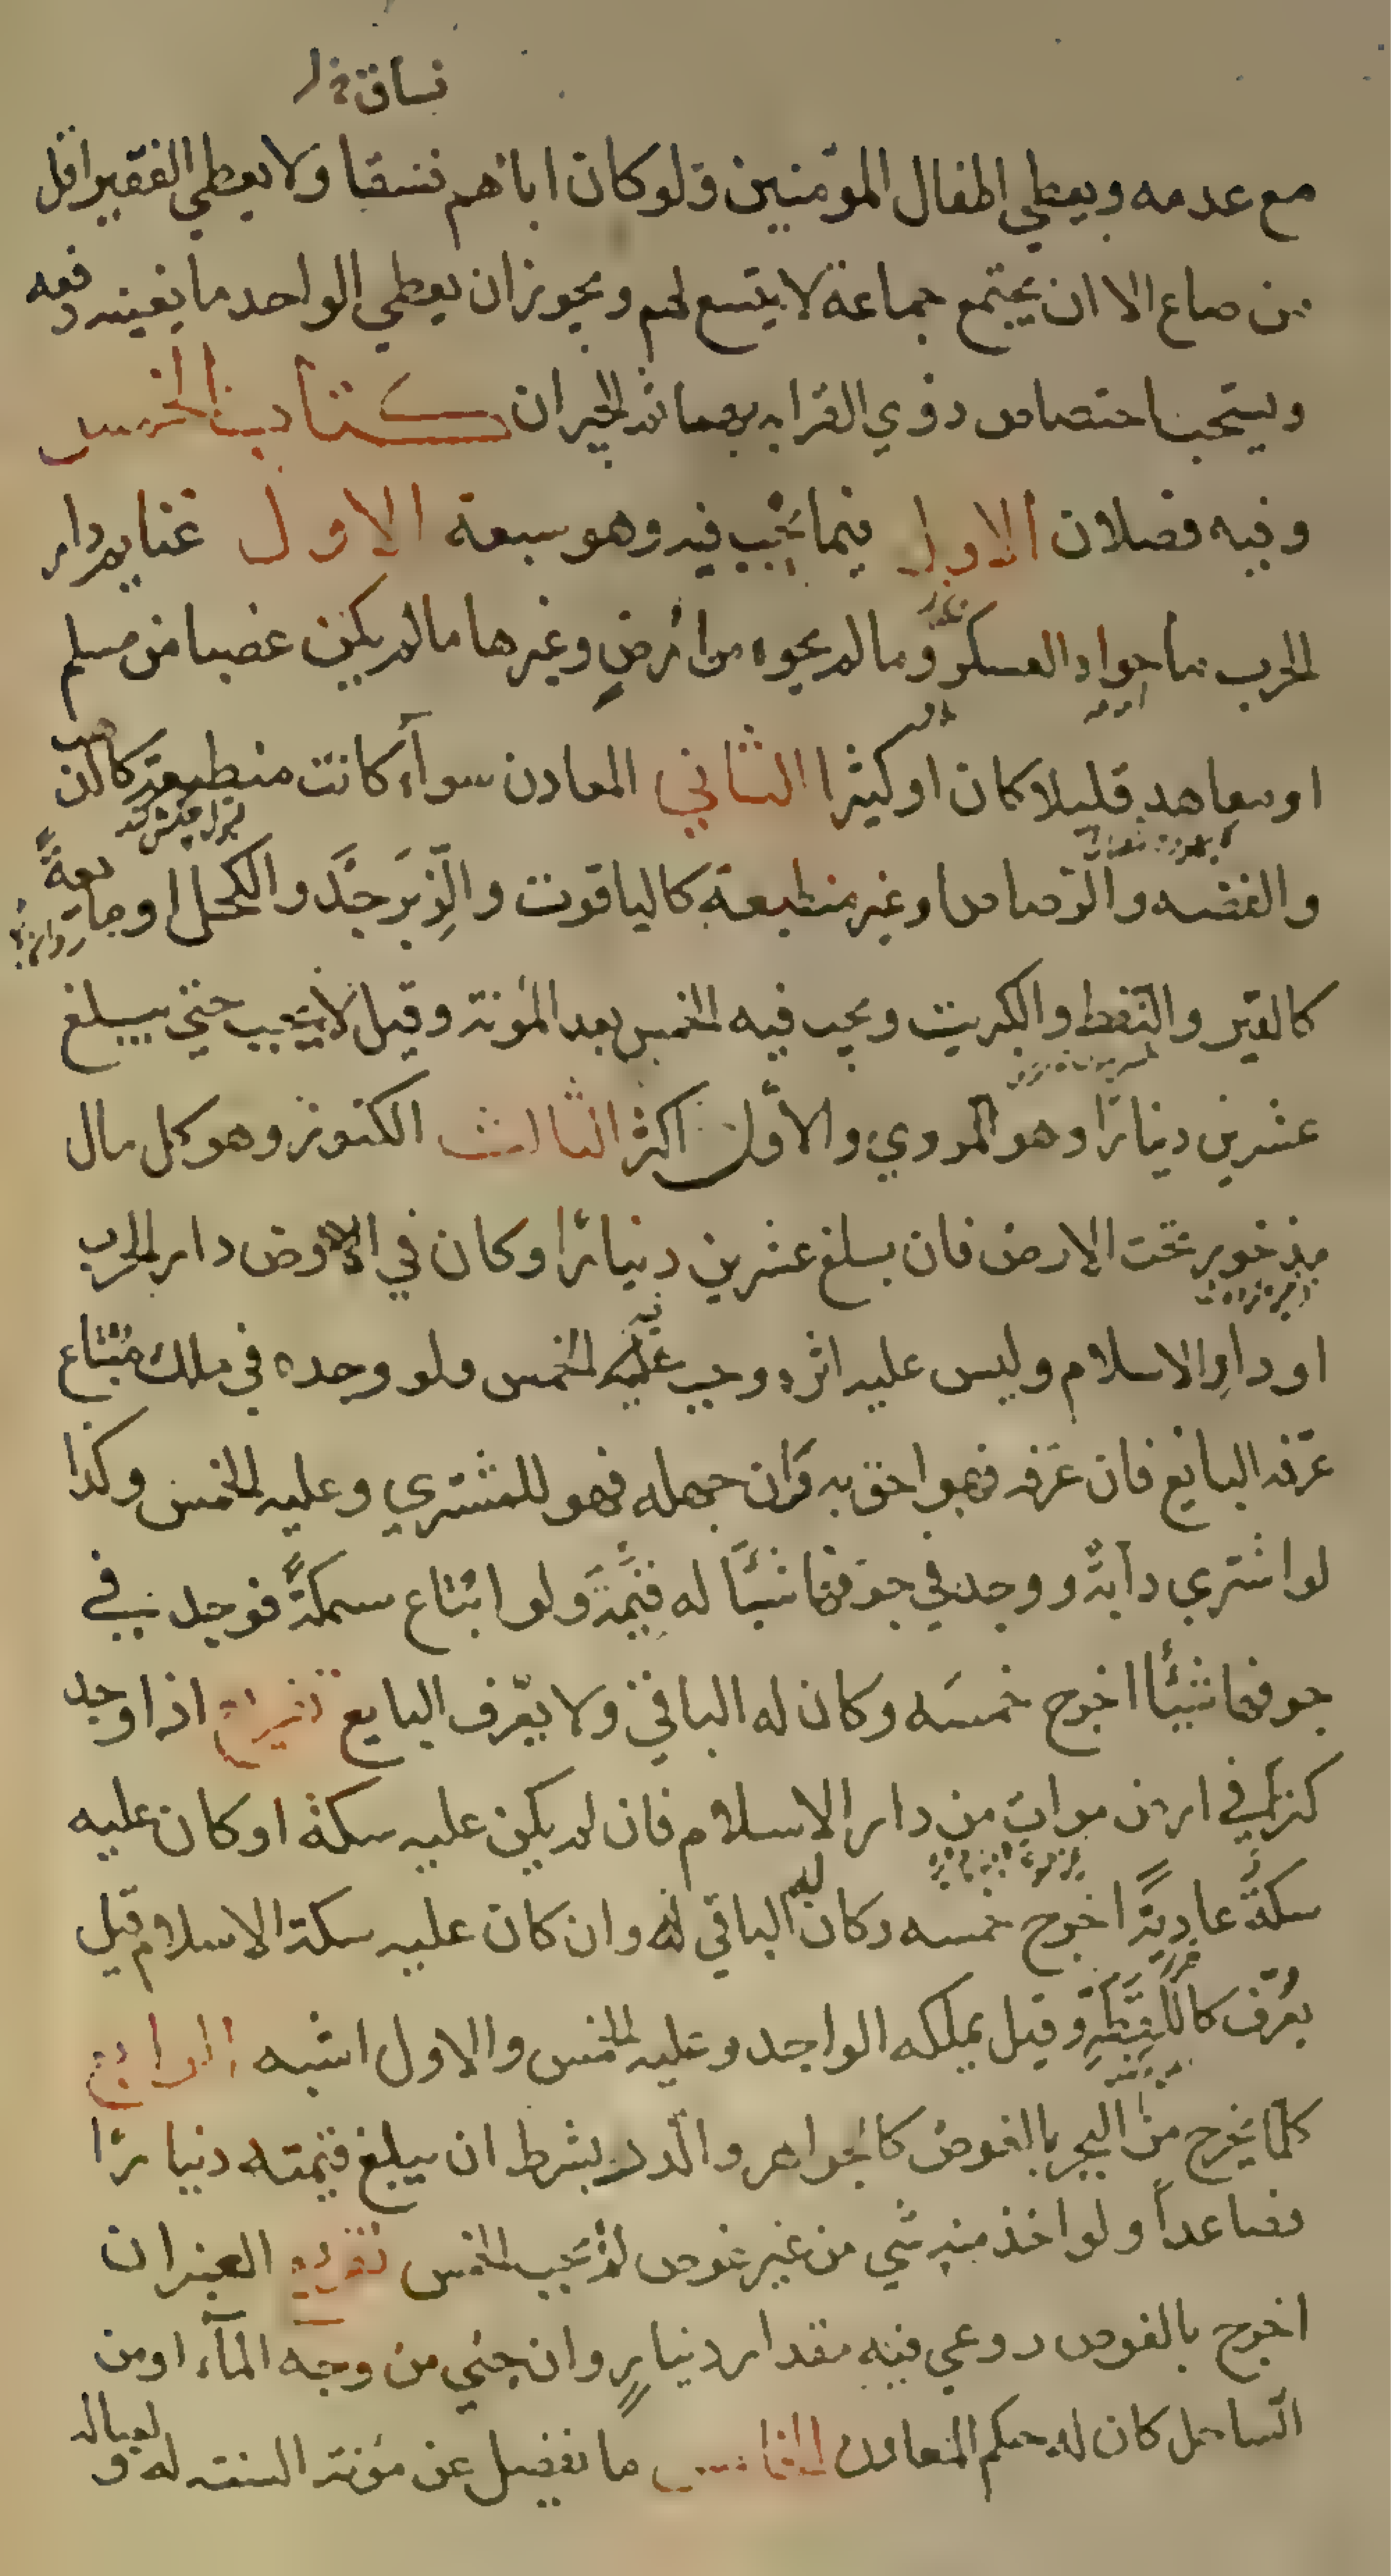 فساق خ ل
مع عدمه ويعطي اطفال المؤمنين ولو كان اباؤهم فسقا ولا يعطي الفقير اقل
من صاع الا ان يجتمع جماعة لا يتسع لهم ويجوز ان يعطي الواحد ما يغنيه دفعه
ويستحب اختصاص ذوي القرابه بها ثم الجيران كتاب الخمس
وفيه فصلان الاول فيما يجب فيه وهو سبعة الاول غنايم دار
الحرب مما حواه العسكر وما لم يحوه من ارضٍ وغيرها ما لم يكن غصبا من مسلم
او معاهد قليلا كان او كثيرا الثاني المعادن سوآء كانت منطبعة كالذهب
والفضه والرّصاص او غير منطبعة كالياقوت والزِبَرجَد والكحل او مايعةً
كالقير والنّفط والكبريت ويجب فيه الخمس بعد المؤنة وقيل لا يجب حتي يبلغ
عشرين دينارًا وهو المروي والاوّل اكثر الثالث الكنوز وهو كل مال
مذخور تحت الارض فان بلغ عشرين دينارًا وكان في الارض دار الحرب
او دار الاسلام وليس عليه اثره وجب عليه الخمس ولو وجده في ملك مبتاع
عرّفه البايع فان عَرفه فهو احق به وَان جهله فهو للمشتري وعليه الخمس وكذا
لو اشتري دابةً ووجد في جوفها شيئًا له قيمَةً ولو ابتاع سمكةً فوجد في
جوفها شيئًا اخرج خمسَه وكان له الباقي ولا يعّرف البايع تفريع اذا وجد
كنزًا في ارض مواتٍ من دار الاسلام فان لم يكن عليه سكة او كان عليه
سكة عاديةً اخرج خمسه وكان له الباقي له وان كان عليه سكة الاسلام قيل
يعُرّف كاللُقَطَةِ وقيل يملكه الواجد وعليه الخمس والاول اشبه الرابع
كلما يخرج من البحر بالغوص كالجواهر والدرر بشرط ان يبلغ قيمته دينارًا
فصاعداً ولو اخذ منه شي من غير غوص لم يجب الخمس تفريع العنبر ان
اخرج بالغوص روعي فيه مقدار دينارٍ وان جني من وجه المآء او من
السّاحل كان له حكم المعادن الخامس ما يفضل عن مؤنة السنة له و لعياله